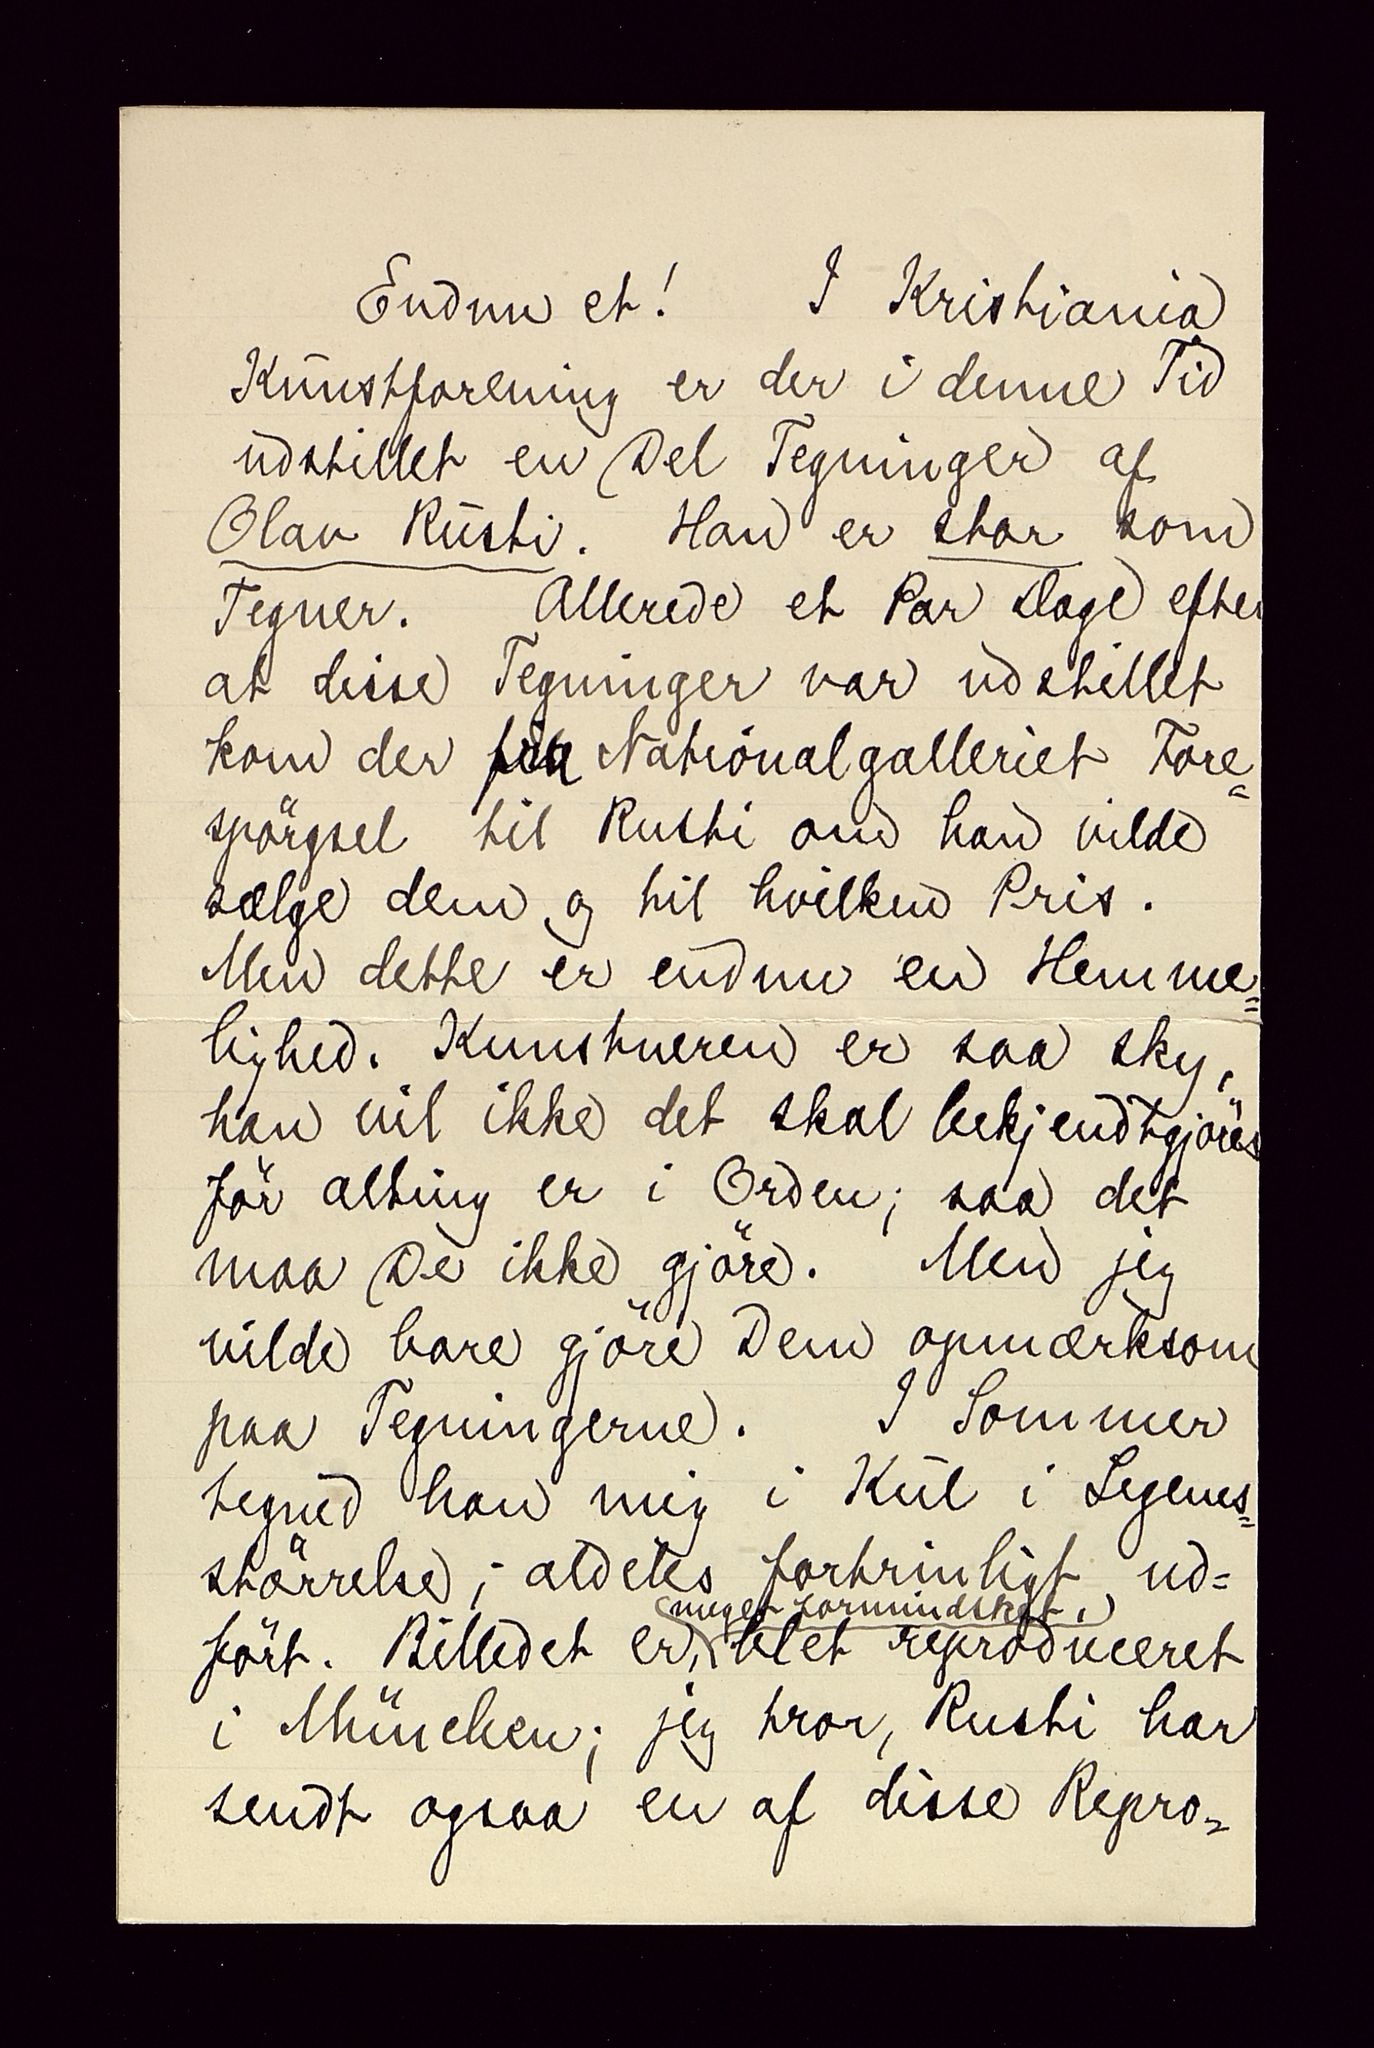 Endnu et! I Kristiania
Kunstforening er der i denne Tid
udstillet en Del Tegninger af
Olav Rusti. Han er stor som
Tegner. Allerede et Par Dage efter
at disse Tegninger var udstillet
kom der fra Nationalgalleriet Fore-
spörgsel til Rusti om han vilde
sælge dem og til hvilken Pris.
Men dette er endnu en Hemme=
lighed. Kunstneren er saa sky,
han vil ikke det skal bekjendtgjöres
för alting er i Orden; saa det
maa De ikke gjöre. Men jeg
vilde bare gjöre Dem opmærksom
paa Tegningerne. I Sommer
tegned han mig i Kul i Legems=
störrelse; aldeles fortrinligt ud=
(meget formindsket.)
fört. Billedet er, blet reproduceret
i München; jeg tror, Rusti har
sendt ogsaa en af disse Repro=